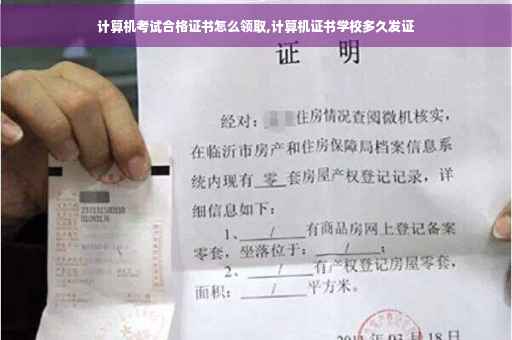 计算机考试合格证书怎么领取,计算机证书学校多久发证
证 明
经对: 住房情况查阅微机核实,
在临沂市房产和住房保障局档案信息系
统内现有 零 套房屋产权登记记录, 详
细信息如下:
1、 / 有商品房网上登记备案
零套, 坐落位于: / ;
2、 / 有产权登记房屋零套,
面积: / 平方米。
03月18日